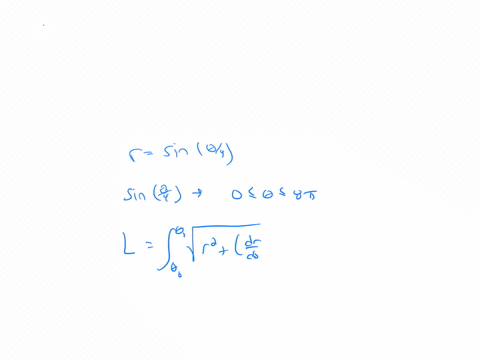 r = sin (θ/4)
sin (θ/4) → 0 ≤ θ ≤ 8π
L = ∫_{θ₀}^{θ₁} √(r² + (dr/dθ